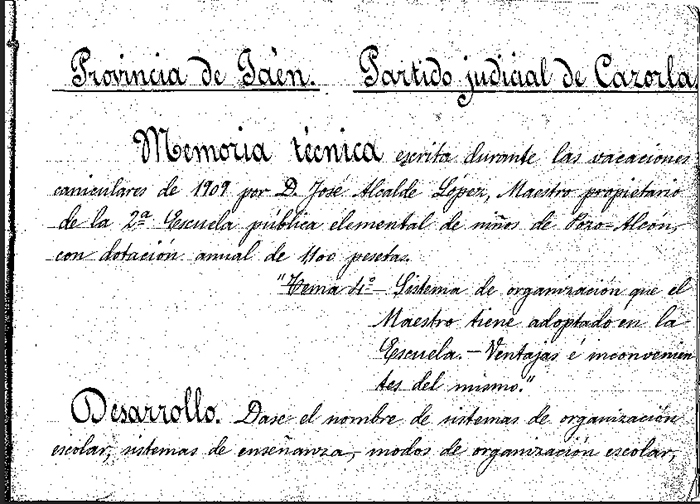 Provincia de Jaén. Partido judicial de Cazorla.
Memoria técnica escrita durante las vacaciones
caniculares de 1909 por D. José Alcalde López, Maestro propietario
de la 2ª Escuela pública elemental de niños de Pozo-Alcón,
con dotación anual de 1100 pesetas.
"Tema 4º- Sistema de organización que el
Maestro tiene adoptado en la
Escuela.- Ventajas é inconvenien
tes del mismo."
Desarrollo. Dase el nombre de sistemas de organización
escolar, sistemas de enseñanza, modos de organización escolar,